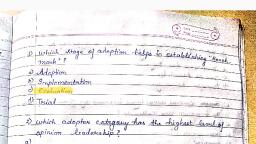 1) Which stage of adoption helps in establishing "bench
mark"?
a) Adoption
b) Implementation
c) Evaluation
d) Trial
2) Which adopter category has the highest level of
opinion leadership?
a)